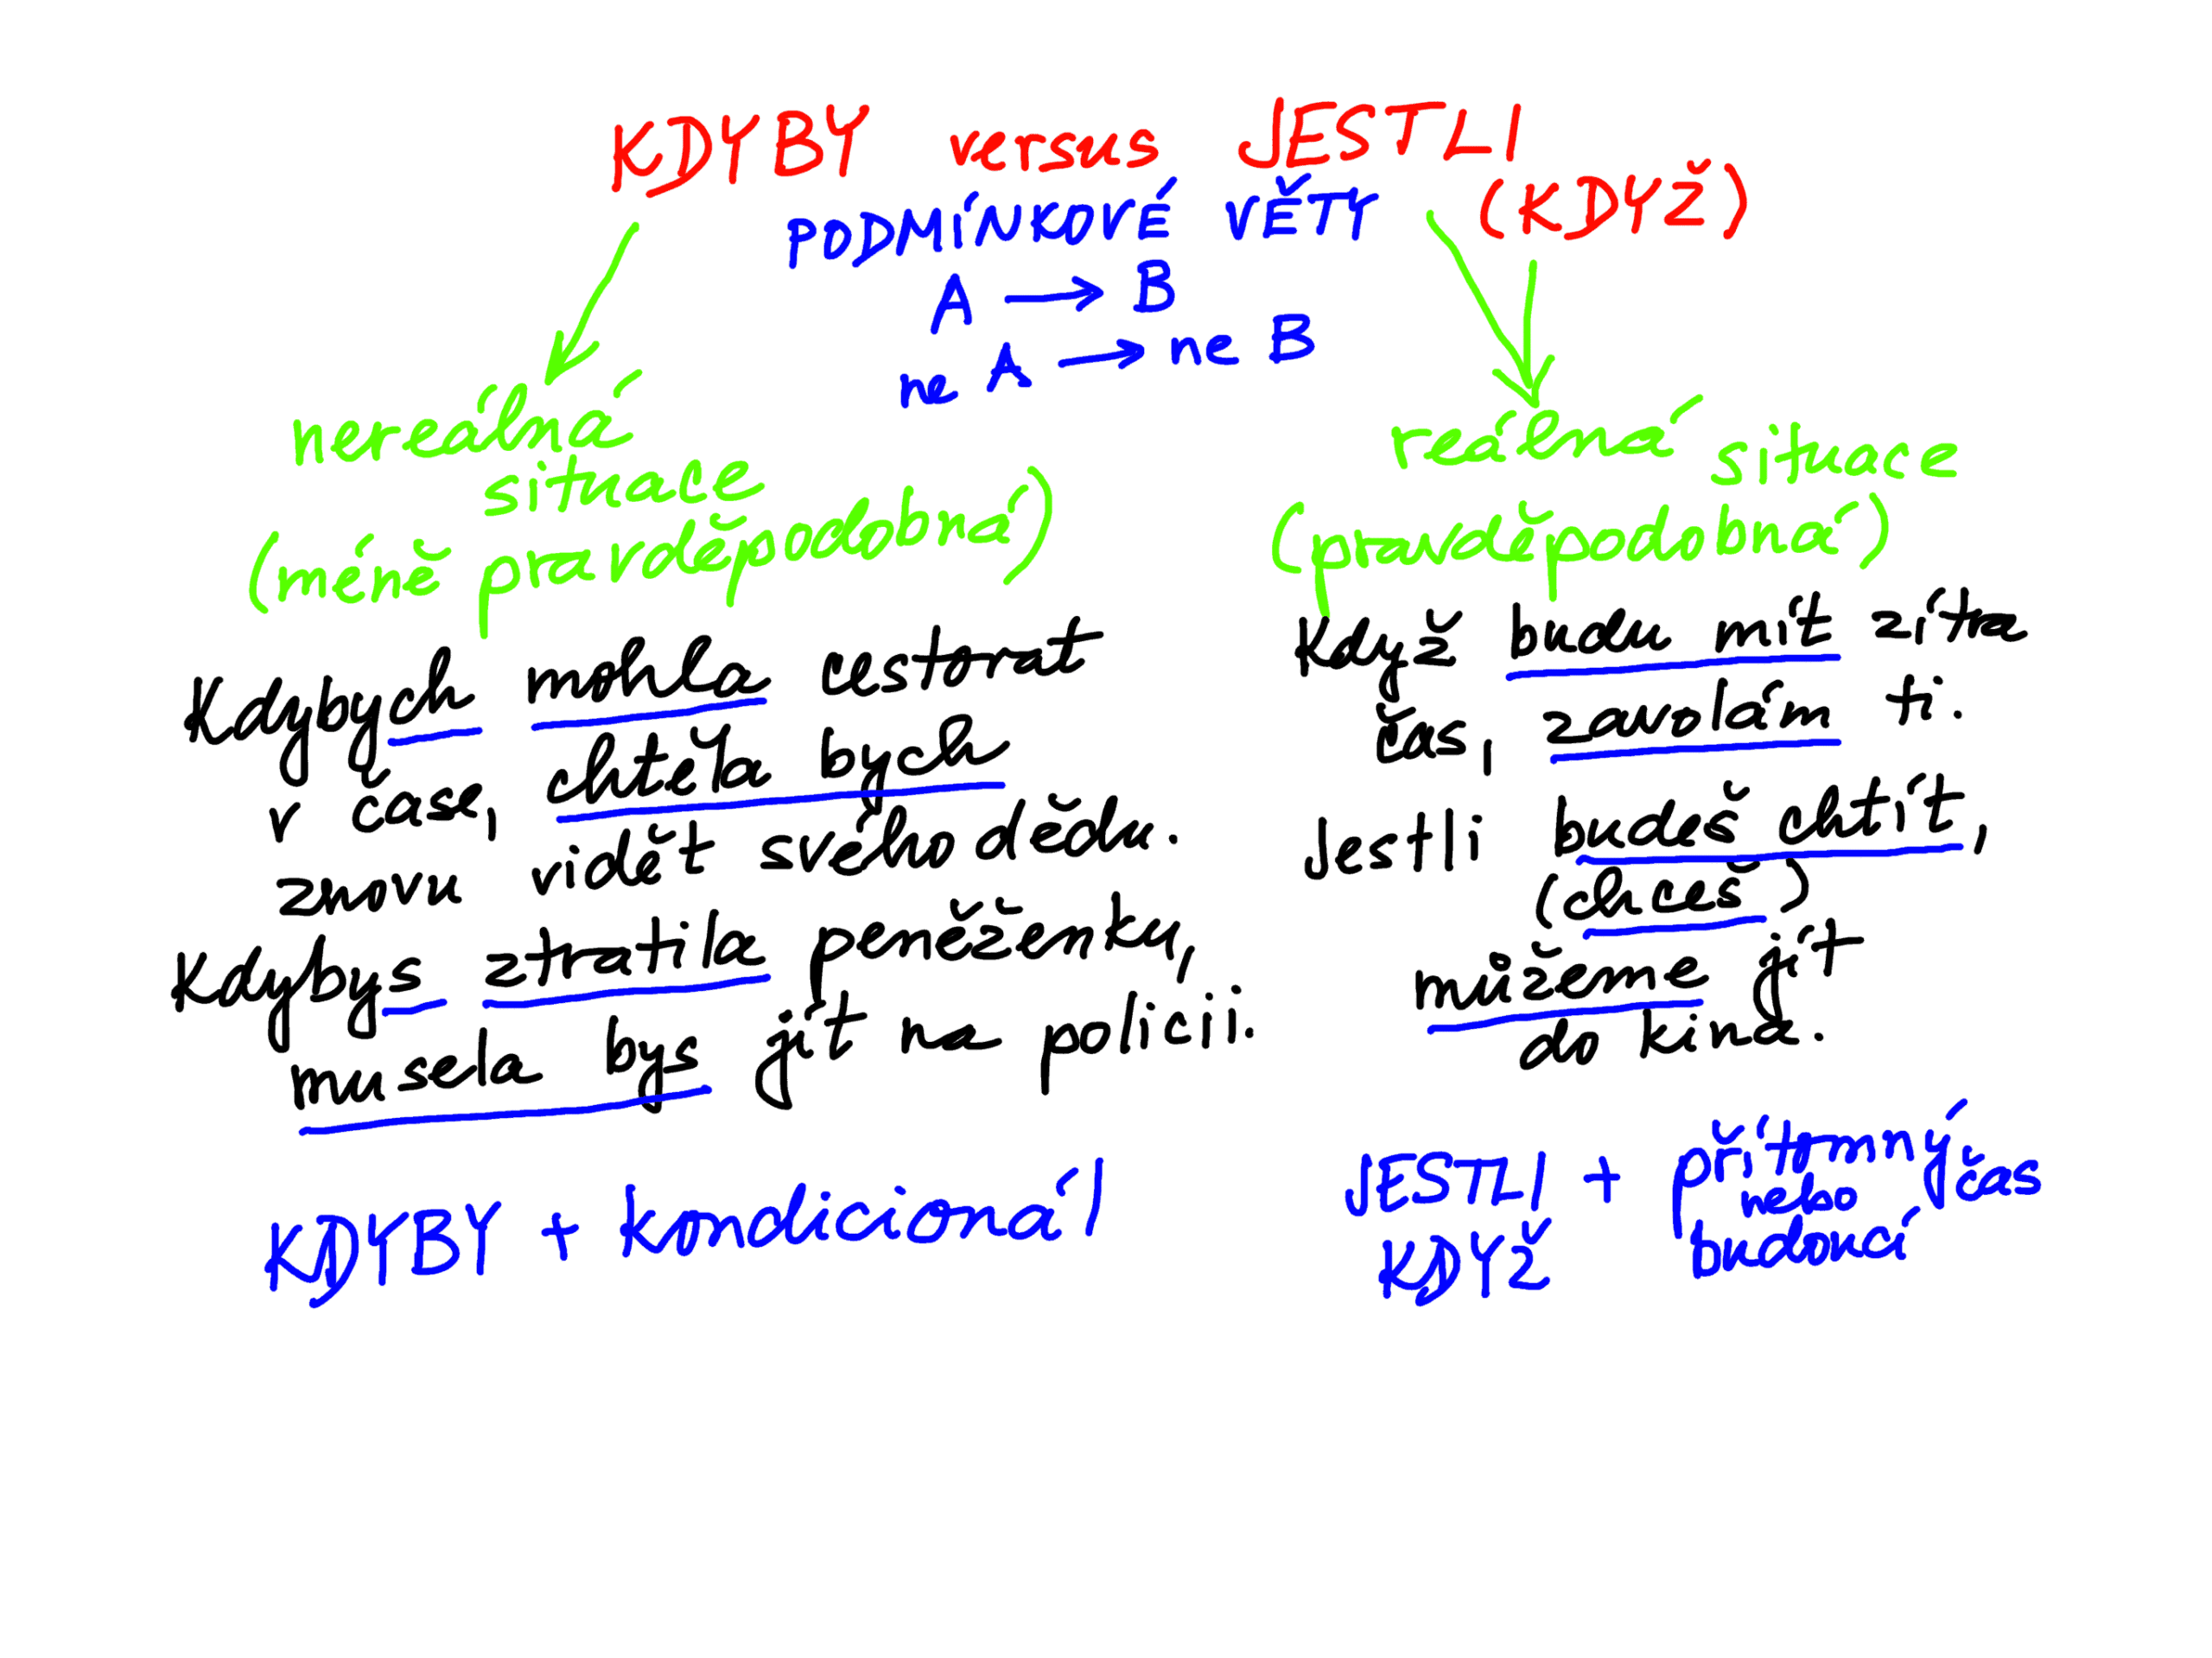 KDYBY versus JESTLI
(KDYŽ)
PODMÍNKOVÉ VĚTY
A → B
ne A → ne B
nereálná
situace
(méně pravděpodobná)
reálná situace
(pravděpodobná)
Kdybych mohla cestovat
v čase, chtěla bych
znovu vidět svého dědu.
Kdybys ztratila peněženku,
musela bys jít na policii.
KDYBY + kondicionál
Když budu mít zítra
čas, zavolám ti.
Jestli budeš chtít,
(chceš)
můžeme jít
do kina.
JESTLI + přítomný čas
nebo
KDYŽ budoucí